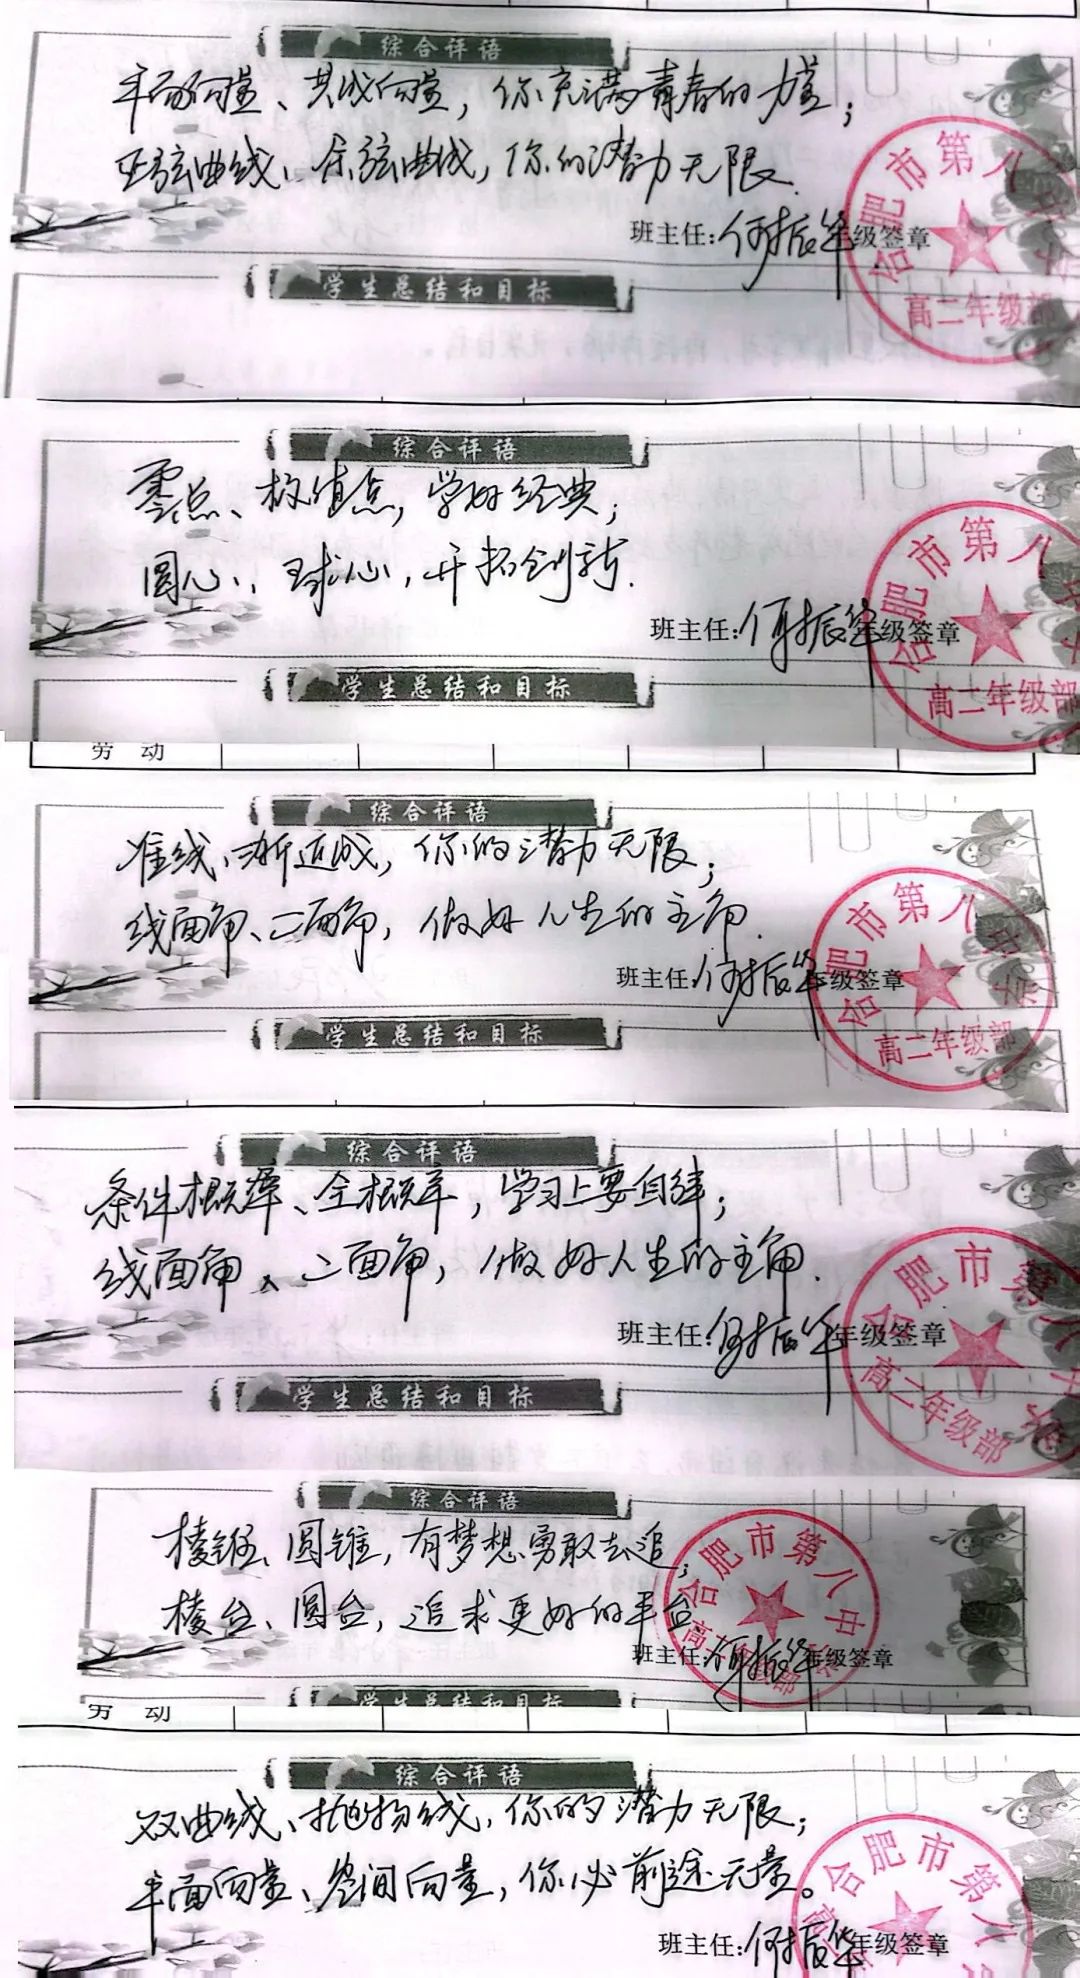 综合评语
平面向量、共线向量，你充满青春的力量；
正弦曲线、余弦曲线，你的潜力无限.
班主任:何振华年级签章
合肥市第八中学
高二年级部
学生总结和目标
综合评语
零点、极值点，学好经典；
圆心、球心，开拓创新.
班主任:何振华年级签章
合肥市第八中学
高二年级部
学生总结和目标
劳 动
综合评语
准线、渐近线，你的潜力无限；
线面角、二面角，做好人生的主角.
班主任:何振华年级签章
合肥市第八中学
高二年级部
学生总结和目标
综合评语
条件概率、全概率，学习上要自律；
线面角、二面角，做好人生的主角.
班主任:何振华年级签章
合肥市第八中学
高二年级部
学生总结和目标
综合评语
棱锥、圆锥，有梦想勇敢去追；
棱台、圆台，追求更好的平台
班主任:何振华年级签章
合肥市第八中学
高二年级部
学生总结和目标
劳 动
综合评语
双曲线、抛物线，你的潜力无限；
平面向量、空间向量，你必前途无量。
班主任:何振华年级签章
合肥市第八